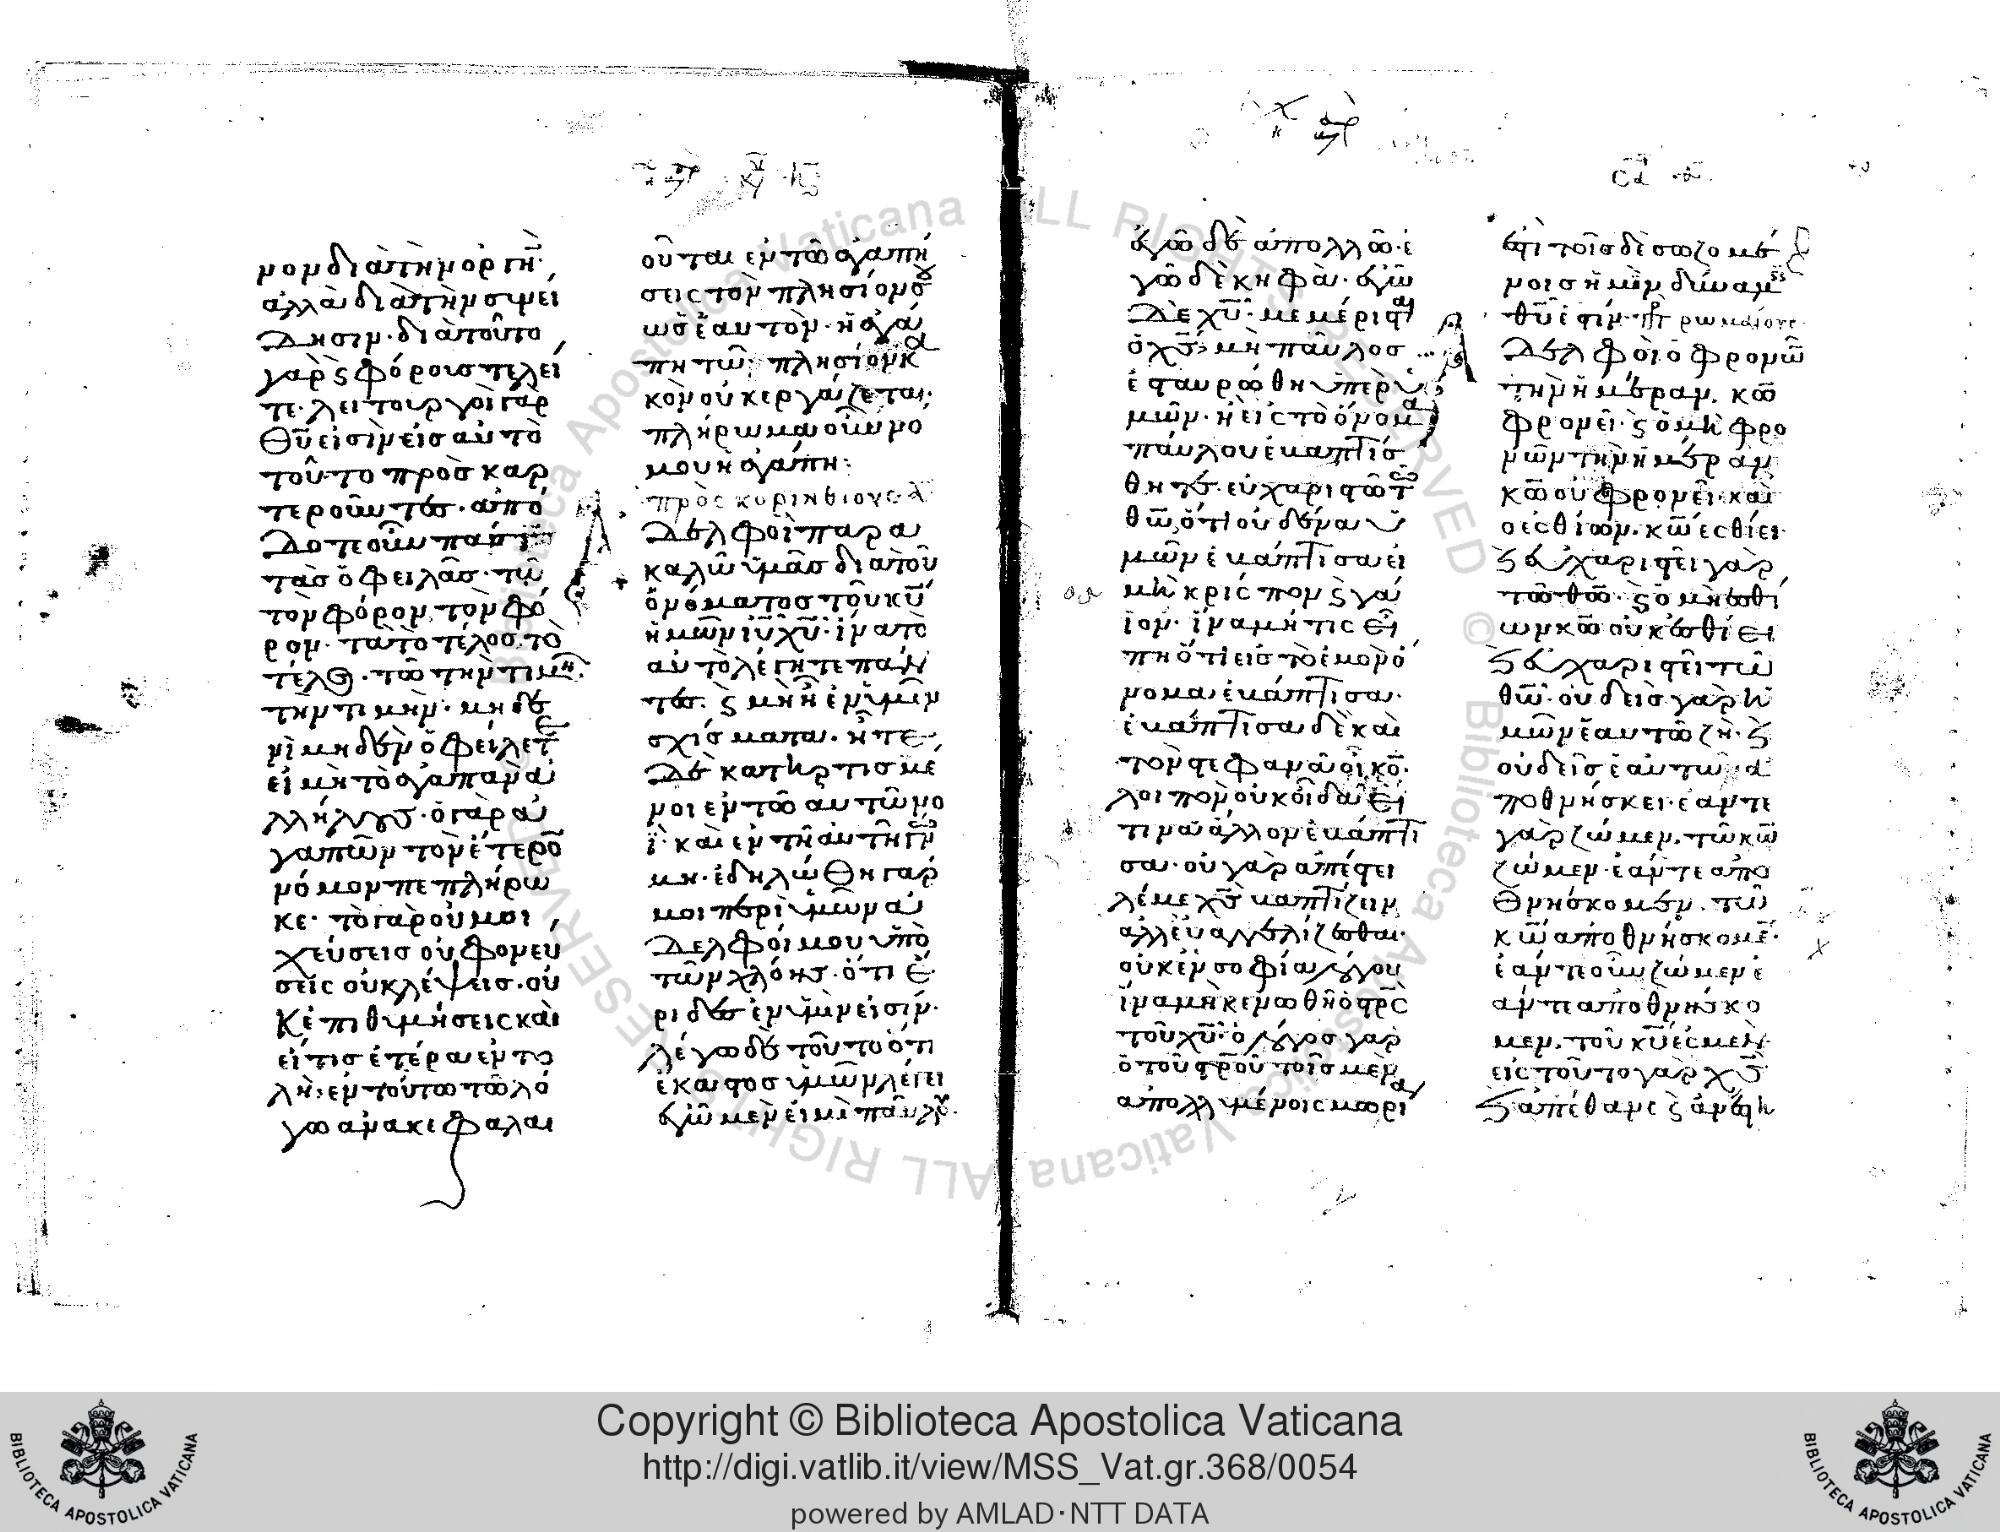 μον διὰ τὴν ὀργὴν·
ἀλλὰ διὰ τὴν συνεί
δησιν· διὰ τοῦτο
γὰρ ϛ φόρους τελεί
τε· λειτουργοὶ γὰρ
θῡ εἰσὶν εἰς αὐτὸ
τοῦτο προσκαρ
τεροῦντες· ἀπό
δοτε οὖν πᾶσι
τὰς ὀφειλὰς· τῶ
τὸν φόρον τὸν φό
ρον· τῶ τὸ τέλος τὸ
τέλος· τῶ τὴν τιμὴν
τὴν τιμὴν· μηδε
νὶ μηδὲν ὀφείλετε
εἰ μὴ τὸ ἀγαπᾶν ἀ
λλήλους· ὁ γὰρ ἀ
γαπῶν τὸν ἕτερον
νόμον πεπλήρω
κε· τὸ γὰρ οὐ μοι
χεύσεις οὐ φονεύ
σεις οὐ κλέψεις· οὐ
κ ἐπιθυμήσεις καὶ
εἴ τις ἑτέρα ἐντο
λὴ· ἐν τούτω τῶ λό
γω ἀνακεφαλαι
οῦται ἐν τῶ ἀγαπή
σεις τὸν πλησίον σου
ὡς ἑαυτὸν· ἡ ἀγά
πη τῶ πλησίον κα
κὸν οὐκ ἐργάζεται·
πλήρωμα οὖν νό
μου ἡ ἀγάπη:
πρὸς κορινθίους α
Ἀδελφοὶ παρα
καλῶ ὑμᾶς διὰ τοῦ
ὀνόματος τοῦ κῡ
ἡμῶν ιῡ χῡ· ἵνα τὸ
αὐτὸ λέγητε πάν
τες· ϛ μὴ ἦ ἐν ὑμῖν
σχίσματα· ἦτε
δὲ κατηρτισμέ
νοι ἐν τῶ αὐτῶ νο
ῒ· καὶ ἐν τῆ αὐτῆ γνώ
μη· ἐδηλώθη γάρ
μοι περὶ ὑμῶν ἀ
δελφοί μου ὑπὸ
τῶν χλόης· ὅτι ἔ
ριδες ἐν ὑμῖν εἰσίν·
λέγω δὲ τοῦτο ὅτι
ἕκαστος ὑμῶν λέγει
ἐγὼ μέν εἰμι παύλου·
ἐγὼ δὲ ἀπολλῶ· ἐ
γὼ δὲ κηφᾶ· ἐγὼ
δὲ χῡ· μεμέρισται
ὁ χς̄· μὴ παῦλος
ἐσταυρώθη ὑπὲρ ὑ
μῶν· ἢ εἰς τὸ ὄνομα
παύλου ἐβαπτίσ
θητε· εὐχαριστῶ τῶ
θω̄ ὅτι οὐδένα ὑ
μῶν ἐβάπτισα εἰ
μὴ κρίσπον ϛ γά
ϊον· ἵνα μή τις εἴ
πη ὅτι εἰς τὸ ἐμὸν ὄ
νομα ἐβάπτισα·
ἐβάπτισα δὲ καὶ
τὸν στεφανᾶ οἶκον·
λοιπὸν οὐκ οἶδα εἴ
τινα ἄλλον ἐβάπτι
σα· οὐ γὰρ ἀπέστει
λέ με χς̄ βαπτίζειν
ἀλλ' εὐαγγελίζεσθαι·
οὐκ ἐν σοφία λόγου
ἵνα μὴ κενωθῆ ὁ στρς̄
τοῦ χῡ· ὁ λόγος γὰρ
ὁ τοῦ στρου τοῖς μὲν
ἀπολλυμένοις μωρία
ἐστὶ τοῖς δὲ σωζομέ
νοις ἡμῖν δύναμις
θῡ ἐστίν· ρωμαίους
Ἀδελφοὶ ὁ φρονῶν
τὴν ἡμέραν· κω̄
φρονεῖ· ϛ ὁ μὴ φρο
νῶν τὴν ἡμέραν
κω̄ οὐ φρονεῖ· καὶ
ὁ ἐσθίων· κω̄ ἐσθίει·
ϛ εὐχαριστεῖ γὰρ
τῶ θω̄· ϛ ὁ μὴ ἐσθί
ων κω̄ οὐκ ἐσθίει
ϛ εὐχαριστεῖ τῶ
θω̄· οὐδεὶς γὰρ ἡ
μῶν ἑαυτῶ ζῆ· ϛ
οὐδεὶς ἑαυτῶ ἀ
ποθνήσκει· ἐάν τε
γὰρ ζῶμεν· τῶ κω̄
ζῶμεν· ἐάν τε ἀπο
θνήσκομεν· τῶ
κω̄ ἀποθνήσκομεν·
ἐάν τε οὖν ζῶμεν ἐ
άν τε ἀποθνήσκο
μεν· τοῦ κῡ ἐσμὲν·
εἰς τοῦτο γὰρ χς̄
ϛ ἀπέθανε ϛ ἀνέστη
Copyright © Biblioteca Apostolica Vaticana
http://digi.vatlib.it/view/MSS_Vat.gr.368/0054
powered by AMLAD·NTT DATA